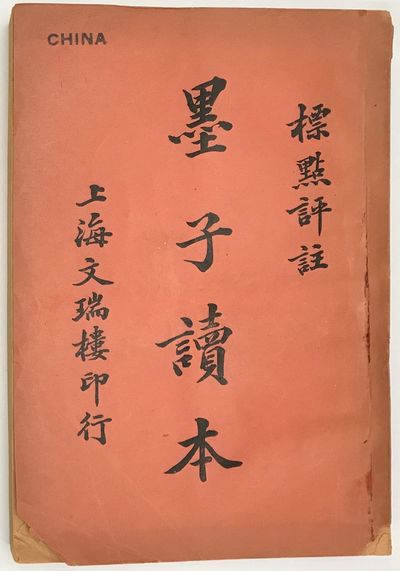 CHINA
標點評註
墨子讀本
上海文瑞樓印行